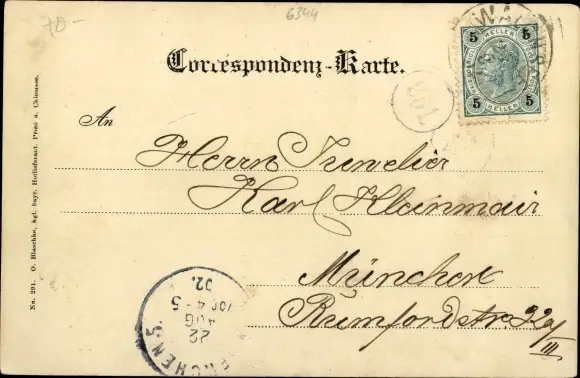 70-
6344
5 5
HELLER
5 5
HELLER
Correspondenz-Karte.
An
Herrn Juwelier
Karl Kleinmair
München
Rumfordstr. 29/III
MÜNCHEN 5.
22
AUG
4-5
02.
No. 291. O. Blaschke, kgl. bayr. Hoflieferant. Prien a. Chiemsee.